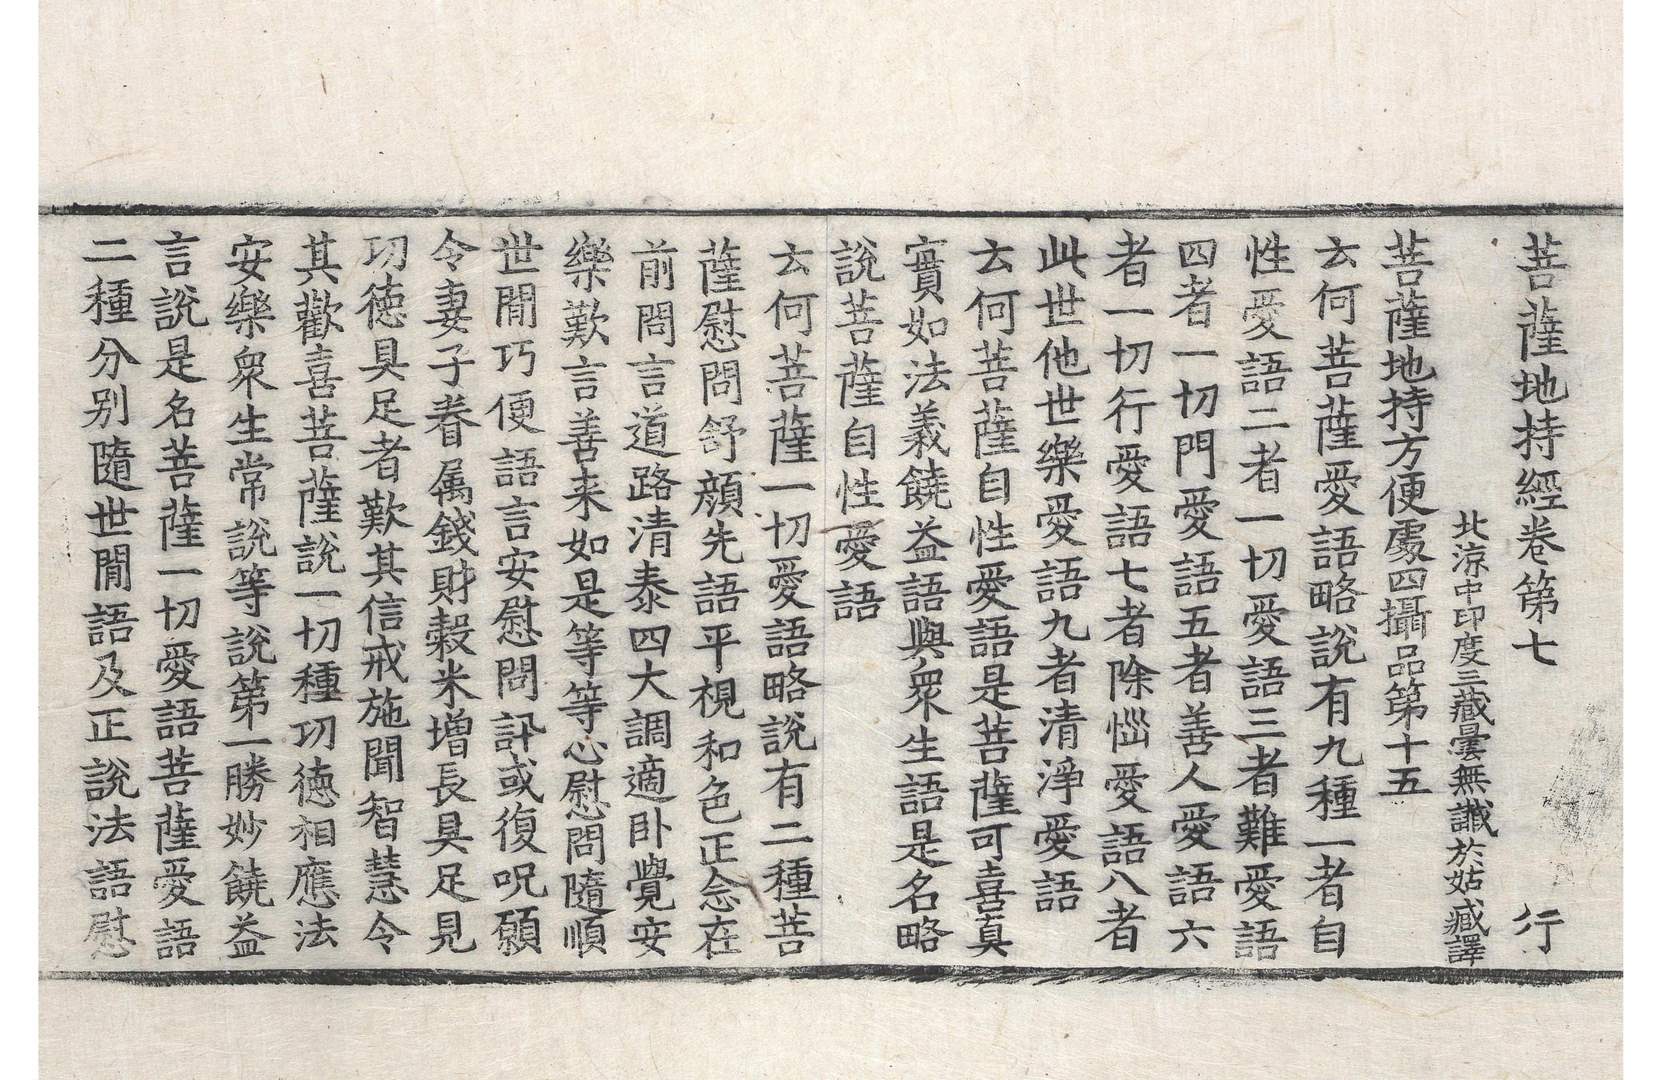 菩薩地持經卷第七　行
北涼中印度三藏曇無讖於姑臧譯
菩薩地持方便處四攝品第十五
云何菩薩愛語略說有九種一者自
性愛語二者一切愛語三者難愛語
四者一切門愛語五者善人愛語六
者一切行愛語七者除惱愛語八者
此世他世樂愛語九者清淨愛語
云何菩薩自性愛語是菩薩可喜真
實如法義饒益語與衆生語是名略
說菩薩自性愛語
云何菩薩一切愛語略說有二種菩
薩慰問舒顔先語平視和色正念在
前問言道路清泰四大調適卧覺安
樂歎言善来如是等等心慰問隨順
世間巧便語言安慰問訊或復呪願
令妻子眷属錢財穀米增長具足見
功德具足者歎其信戒施聞智慧令
其歡喜菩薩說一切種功德相應法
安樂衆生常說等說第一勝妙饒益
言說是名菩薩一切愛語菩薩愛語
二種分别隨世間語及正說法語慰